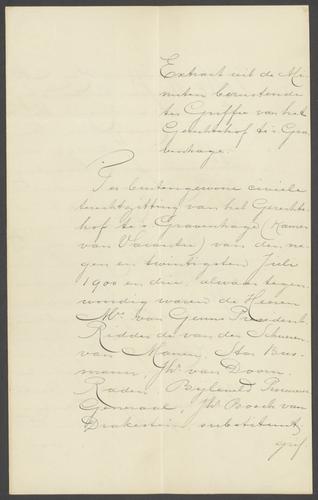 Extract uit de Mi-
nuten berustende
ter Griffie van het
Gerechtshof te 's Gra-
venhage.
Ter buitengewone civiele
terechtzitting van het Gerechts-
hof te 's Gravenhage (Kamer
van Vacantie) van den ne-
gen en twintigsten Juli
1900 en drie, alwaar tegen-
woordig waren de Heeren
Mrs. van Gennep President,
Ridder de van der Schueren,
van Manen,
Jhr. van Doorn,
Raden, Byleveld Procureur
Generaal, Jhr. Bosch van
Drakestein substituut
grif